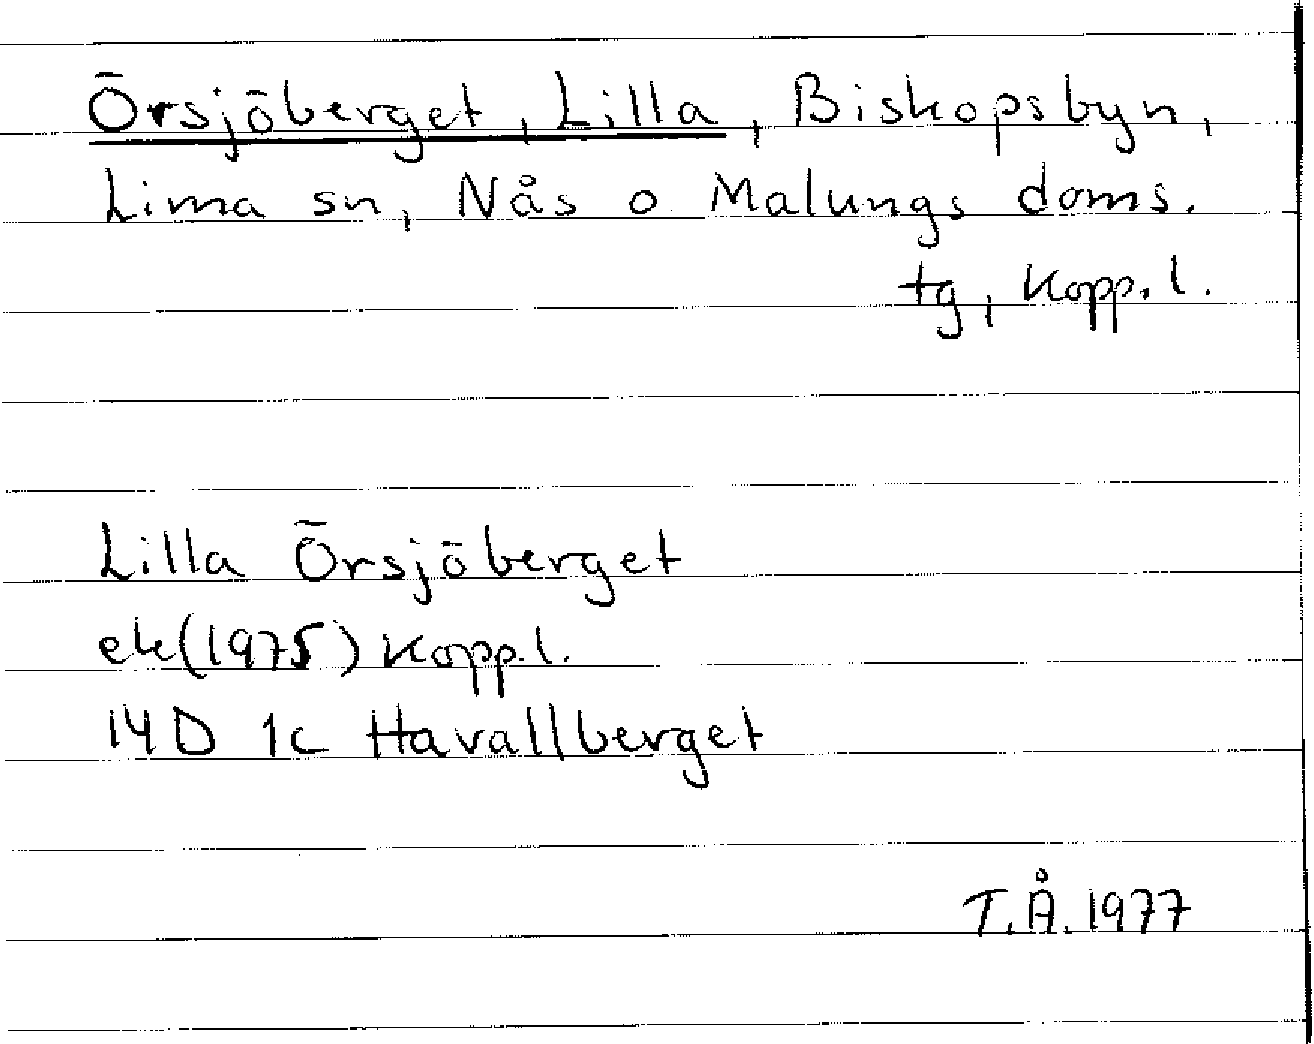 Örsjöberget, Lilla, Biskopsbyn,
Lima sn, Nås o Malungs doms.
tg, Kopp. l.
Lilla Örsjöberget
ek(1975) Kopp. l.
14D 1c Havallberget
T.Å. 1977